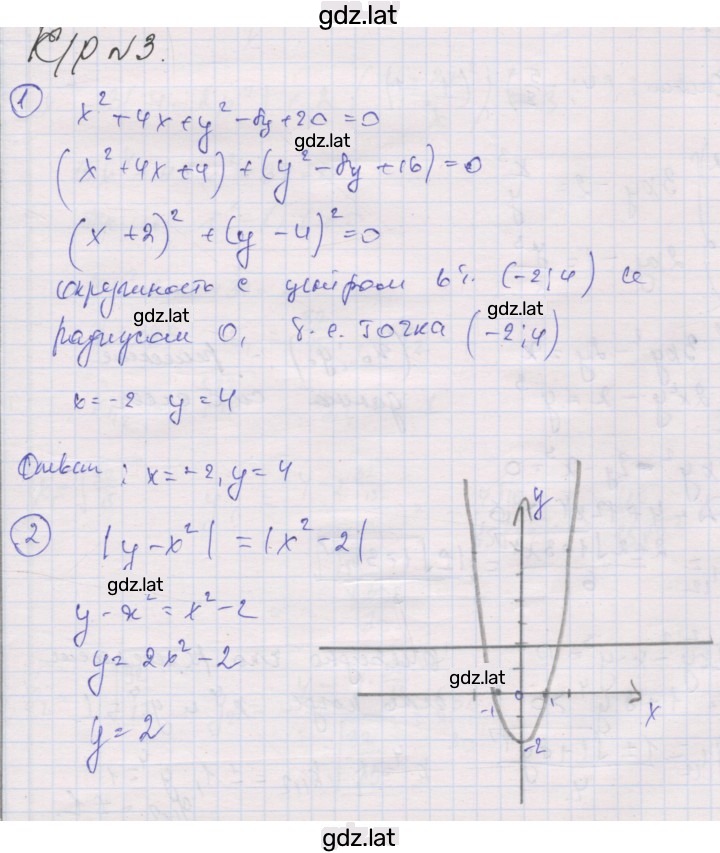 gdz.lat
К/р №3.
1
x² + 4x + y² - 8y + 20 = 0
gdz.lat
(x² + 4x + 4) + (y² - 8y + 16) = 0
(x + 2)² + (y - 4)² = 0
окружность с центром в т. (-2; 4) и
gdz.lat gdz.lat
радиусом 0, т. е. точка (-2; 4)
x = -2 y = 4
Ответ: x = -2, y = 4
2
|y - x²| = |x² - 2|
gdz.lat
y - x² = x² - 2
y = 2x² - 2
y = 2
y
gdz.lat
-1 0 1 x
-2
gdz.lat